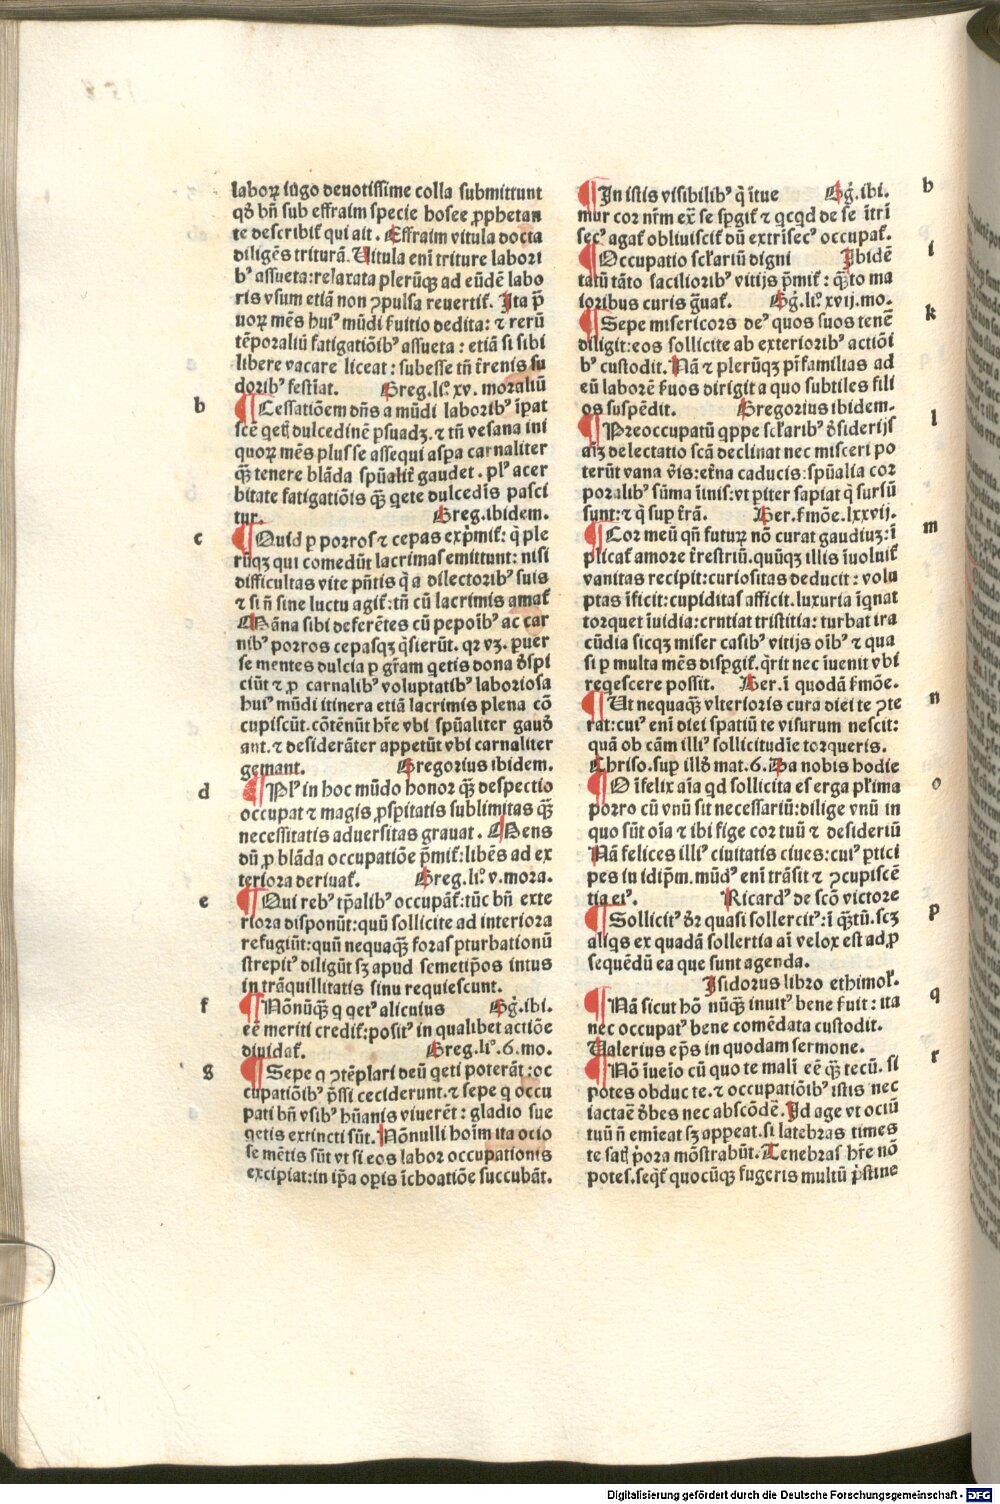 laboꝝ iugo deuotissime colla submittunt
qđ bn̄ sub effraim specie hosee ꝓphetan
te describit᷑ qui ait. Effraim vitula docta
diligēs triturā. Uitula enī triture labori
bꝰ assueta:relaxata plerūqꝫ ad eūdē labo
ris vsum etiā non ꝯpulsa reuertit᷑. Ita p̄
uoꝝ mēs huiꝰ mūdi ẜuitio dedita: ⁊ rerū
tēporaliū fatigatiōibꝰ assueta: etiā si sibi
libere vacare liceat: subesse tn̄ t̄renis su
doribꝰ festīat. Greg.li.ͦ xv. moraliū
b
¶ Cessatiōem dn̄s a mūdi laboribꝰ īpat
scē qet᷑ dulcedinē ꝑsuadꝫ. ⁊ tn̄ vesana ini
quoꝝ mēs plus se assequi aspa carnaliter
qꝫ̄ tenere blāda spūalit᷑ gaudet. plꝰ acer
bitate fatigatiōis qꝫ̄ qete dulcedīs pasci
tur. Greg.ibidem.
c
¶ Quid ꝑ porros ⁊ cepas exp̄mit᷑: q̇ ple
rūqꝫ qui comedūt lacrimas emittunt: nisi
difficultas vite pn̄tis q̇ a dilectoribꝰ suis
⁊ si n̄ sine luctu agit᷑:tn̄ cū lacrimis amat᷑
Māna sibi deferētes cū pepoībꝰ ac car
nibꝰ porros cepasqꝫ q̇sierūt. qꝛ vꝫ. ꝑuer
se mentes dulcia ꝑ gr̄am qetis dona đspi
ciūt ⁊ ꝓ carnalibꝰ voluptatibꝰ laboriosa
huiꝰ mūdi itinera etiā lacrimis plena cō
cupiscūt. cōtēnūt hr̄e vbi spūaliter gauđ
ant. ⁊ desiderāter appetūt vbi carnaliter
gemant. Gregorius ibidem.
d
¶ Plꝰ in hoc mūdo honor qꝫ̄ despectio
occupat ⁊ magis ꝓspitatis sublimitas qꝫ̄
necessitatis aduersitas grauat. Mens
dū ꝓ blāda occupatiōe p̄mit᷑: libēs ad ex
teriora deriuat᷑. Greg.li.ͦ v. mora.
e
¶ Qui rebꝰ tp̄alibꝰ occupāt᷑: tūc bn̄ exte
riora disponūt: quū sollicite ad interiora
refugiūt: quū nequaqꝫ̄ foras ꝑturbationū
strepitꝰ diligūt sꝫ apud semetip̄os intus
in trāquillitatis sinu requiescunt.
f
¶ Nōnūqꝫ̄ q qetꝰ alicuius Gg̊.ibi.
eē meriti credit᷑: positꝰ in qualibet actiōe
diuidat᷑. Greg.li.ͦ 6. mo.
g
¶ Sepe q ꝯtēplari deū qeti poterāt: oc
cupatiōibꝰ p̄ssi ceciderunt. ⁊ sepe q occu
pati bn̄ vsibꝰ hūanis viuerēt: gladio sue
qetis extincti sūt. Nōnulli hoīm ita ocio
se mētis sūt vt si eos labor occupationis
excipiat: in ip̄a oꝑis īchoatiōe succubāt.
h
¶ In istis visibilibꝰ q̇ ītue Gg̊.ibi.
mur cor nr̄m ex̄ se spgit᷑ ⁊ qcqd de se ītrī
secꝰ agat᷑ obliuiscit᷑ dū extrīsecꝰ occupat᷑.
i
¶ Occupatio sclariū digni Ibidē
tatū tāto facilioribꝰ vitijs p̄mit᷑: qꝫ̄to ma
ioribus curis grauat᷑. Gg̊.li.ͦ xvij.mo.
k
¶ Sepe misericors deꝰ quos suos tenē
diligit: eos sollicite ab exterioribꝰ actiōi
bꝰ custodit. Nā ⁊ plerūqꝫ pr̄familias ad
eū laborē ẜuos dirigit a quo subtiles fili
os suspēdit. Gregorius ibidem.
l
¶ Preoccupatū qppe sclaribꝰ đsiderijs
aīꝫ delectatio scā declinat nec misceri po
terūt vana v̄is: et᷑na caducis: spūalia cor
poralibꝰ sūma īinis: vt ꝑiter sapiat q̇ sursū
sunt: ⁊ q̇ suꝑ t̄rā. Ber.ẜmōe.lxxvij.
m
¶ Cor meū qn̄ futuꝝ nō curat gaudiuꝫ: ī
plicat᷑ amore t̄restriū. quūqꝫ illis īuoluit᷑
vanitas recipit: curiositas deducit: volu
ptas īficit: cupiditas afficit. luxuria īqnat
torquet īuidia: crutiat tristitia: turbat ira
cūdia sicqꝫ miser casibꝰ vitijs oībꝰ ⁊ qua
si ꝑ multa mēs disꝑgit᷑. q̄rit nec īuenit vbi
reqescere possit. Ber.ī quodā ẜmōe.
n
¶ Ut nequaqꝫ̄ vlterioris cura diei te ꝯte
rat: cuiꝰ enī diei spatiū te visurum nescit:
quā ob cām illiꝰ sollicitudīe torqueris.
Chriso.suꝑ illđ mat.6. Da nobis hodie
o
¶ O īfelix aīa qd sollicita es erga plīma
porro cū vnū sit necessariū: dilige vnū in
quo sūt oīa ⁊ ibi fige cor tuū ⁊ desideriū
Nā felices illiꝰ ciuitatis ciues: cuiꝰ ptici
pes in idip̄m. mūdꝰ enī trāsit ⁊ ꝯcupiscē
tia eiꝰ. Ricardꝰ de scō victore
p
¶ Sollicitꝰ đr quasi sollercitꝰ: ī qꝫ̄tū. scꝫ
aliqs ex quadā sollertia aī velox est ad ꝓ
sequēdū ea que sunt agenda.
Isidorus libro ethimol᷑.
q
¶ Nā sicut hō nūqꝫ̄ inuitꝰ bene ẜuit: ita
nec occupatꝰ bene comēdata custodit.
Ualerius ep̄s in quodam sermone.
r
¶ Nō īueīo cū quo te mali eē qꝫ̄ tecū. si
potes obduc te. ⁊ occupatiōibꝰ istis nec
iactaē đbes nec abscōdē. Id age vt ociū
tuū n̄ emieat sꝫ appeat. si latebras times
te sat᷑ ip̄ora mōstrabūt. Tenebras hr̄e nō
potes. seqt᷑ quocūqꝫ fugeris multū p̄stine
Digitalisierung gefördert durch die Deutsche Forschungsgemeinschaft - DFG